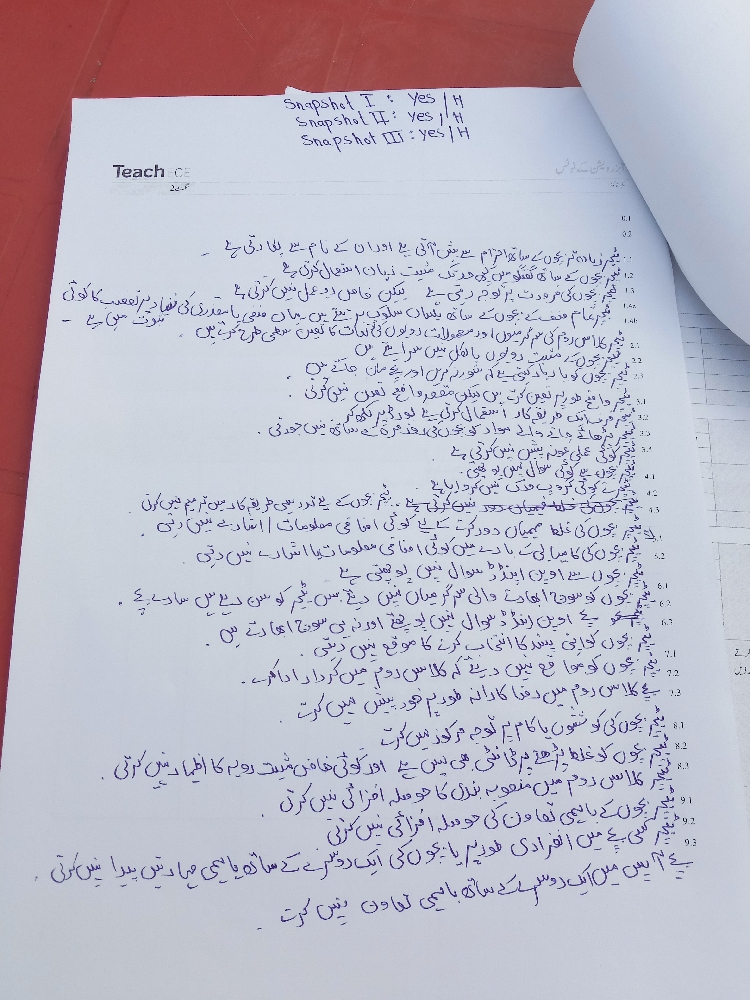 Snapshot I : Yes / H
Snapshot II : Yes / H
Snapshot III : Yes / H
Teach ECE
آبزرویشن کے نوٹس
0.1
0.2
1.1 ٹیچر زیادہ تر بچوں کے ساتھ احترام سے پیش آتی ہے اور ان کے نام سے پکارتی ہے
1.2 ٹیچر بچوں کے ساتھ گفتگو میں کسی حد تک مثبت زبان استعمال کرتی ہے
1.3 ٹیچر بچوں کی ضرورت پر توجہ دیتی ہے لیکن خاص ردِ عمل نہیں کرتی ہے
1.4a ٹیچر تمام صنف کے بچوں کے ساتھ یکساں سلوک پر پیش ہیں یہاں منفی یا معذوری کی بنیاد پر تعصب کا کوئی ثبوت نہیں ہے
1.4b
2.1 ٹیچر کلاس روم کی سرگرمیوں اور معمولات رویوں کی توقعات کا تعین سطحی طرح کرتے ہیں
2.2 ٹیچر بچوں کے مثبت رویوں بالکل نہیں سراہتے ہیں
2.3 ٹیچر بچوں کو بار بار کہتی ہے کہ شور نہ کریں اور بچے مان جاتے ہیں
3.1 ٹیچر واضح طور پر تعین کرتے ہیں لیکن مقصد واضح تعین نہیں کرتی
3.2 ٹیچر صرف ایک طریقہ کار استعمال کرتی ہے بورڈ پر لکھ کر
3.3 ٹیچر پڑھائے جانے والے مواد کو بچوں کی روزمرہ کے ساتھ نہیں جوڑتی
3.4 ٹیچر کوئی عملی نمونہ پیش نہیں کرتی ہے
4.1 ٹیچر بچوں سے کوئی سوال نہیں پوچھتی
4.2 ٹیچر نے کوئی گروپ ورک نہیں کروایا ہے
4.3 ٹیچر بچوں کے لیے تدریسی طریقہ کار میں ترمیم نہیں کرتی
5.1 ٹیچر بچوں کی غلط فہمیاں دور کرنے کے لیے کوئی اضافی معلومات / اشارے نہیں دیتی
5.2 ٹیچر بچوں کی کامیابی کے بارے میں کوئی اضافی معلومات یا اشارے نہیں دیتی
6.1 ٹیچر بچوں سے اوپن اینڈڈ سوال نہیں پوچھتی ہے
6.2 ٹیچر بچوں کو سوچ ابھارنے والی سرگرمیاں نہیں دیتے بس ٹیچر کو سن رہے ہیں سارے بچے
6.3 بچے اوپن اینڈڈ سوال نہیں پوچھتے اور نہ ہی سوچ ابھارتے ہیں
7.1 ٹیچر بچوں کو اپنی پسند کا انتخاب کرنے کا موقع نہیں دیتی
7.2 ٹیچر بچوں کو مواقع نہیں دیتے کہ کلاس روم میں کردار ادا کرے
7.3 بچے کلاس روم میں رضاکارانہ طور پر خود پیش نہیں کرتے
8.1 ٹیچر بچوں کی کوششوں یا کام پر توجہ مرکوز نہیں کرتے
8.2 ٹیچر بچوں کو غلط پڑھنے پر ڈانٹتی بھی نہیں ہے اور کوئی خاص مثبت رویہ کا اظہار نہیں کرتی
8.3 ٹیچر کلاس روم میں منصوبہ بندی کا حوصلہ افزائی نہیں کرتی
9.1 ٹیچر بچوں کے باہمی تعاون کی حوصلہ افزائی نہیں کرتی
9.2 ٹیچر کسی بچے میں انفرادی طور پر یا بچوں کی ایک دوسرے کے ساتھ باہمی مہارتیں پیدا نہیں کرتی
9.3 بچے آپس میں ایک دوسرے کے ساتھ باہمی تعاون نہیں کرتے